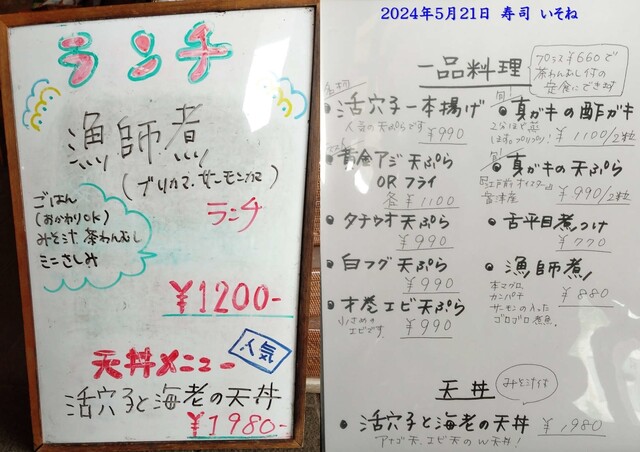 ランチ
漁師煮
(ブリカマ、サーモンカマ)
ランチ
ごはん
(おかわりOK)
みそ汁 茶わんむし
ミニさしみ
¥1200-
天丼メニュー
人気
活穴子と海老の天丼
¥1980-
2024年5月21日 寿司 いそね
一品料理
プラス¥660で
茶わんむし付の
定食にできます
活穴子一本揚げ
人気の天ぷらです
¥990
黄金アジ 天ぷら
OR フライ
各 ¥1100
タチウオ天ぷら
¥990
白フグ天ぷら
¥990
才巻エビ天ぷら
小さめの
エビです
¥990
旬!
真ガキの酢ガキ
¥1100/2粒
旬!
真ガキの天ぷら
¥990/2粒
舌平目煮つけ
¥770
漁師煮
本マグロ
カンパチ
サーモンの入った
ゴロゴロ煮魚
¥880
天丼
みそ汁付
活穴子と海老の天丼
¥1,980
アナゴ天、エビ天のW天丼!